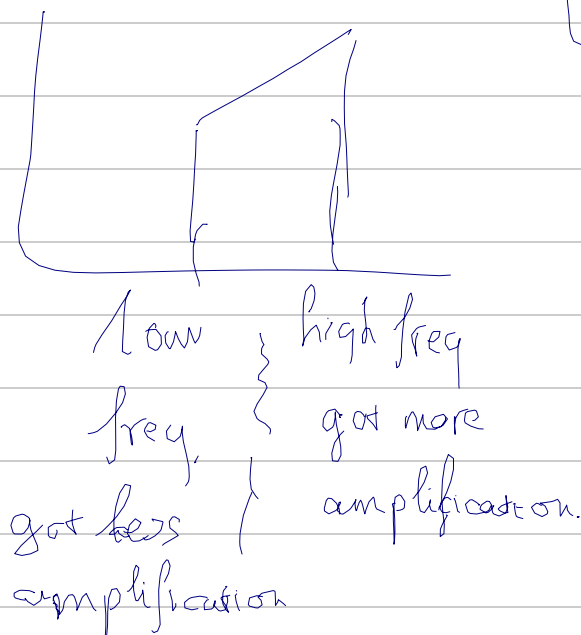 low
freq.
got less
amplification
high freq
got more
amplification.